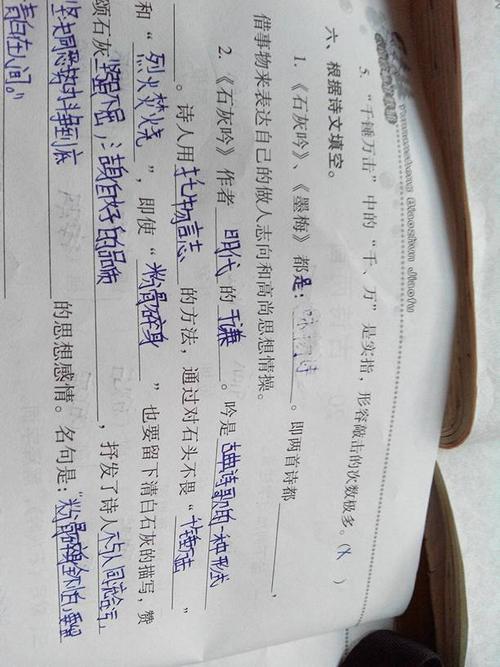 5. “千锤万击”中的“千、万”是实指，形容敲击的次数极多。（X ）
六、根据诗文填空。
1. 《石灰吟》、《墨梅》都是：咏物诗。即两首诗都
借事物来表达自己的做人志向和高尚思想情操。
2. 《石灰吟》作者 明代 的 于谦 。吟是 古典诗歌的一种形式
。诗人用 托物言志 的方法，通过对石头不畏“千锤万击”
和“烈火焚烧”，即使“粉骨碎身”也要留下清白石灰的描写，赞
颂石灰 坚强不屈，洁身自好的品质 ，抒发了诗人
的思想感情。名句是：“粉骨碎
青白在人间。”